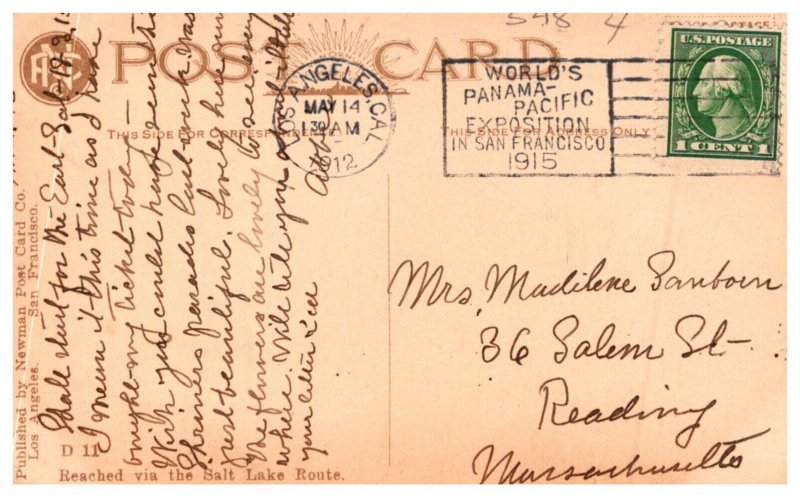 548 4
POST CARD
THIS SIDE FOR CORRESPONDENCE
THIS SIDE FOR ADDRESS ONLY
LOS ANGELES, CAL.
MAY 14
AM
1912
WORLD'S
PANAMA-
PACIFIC
EXPOSITION
IN SAN FRANCISCO
1915
U.S. POSTAGE
1 CENT 1
Shall start for the East - Sat - 18.
I mean it this time as I have
bought my ticket today -
Wish you could have seen the
Shriners parades last week. Was
just beautiful. Lovely here now
the flowers are lovely to see every
where. Will tell you about it
your letter
Mrs. Madilene Sanborn
36 Salem St-
Reading
Massachusetts
Published by Newman Post Card Co.
Los Angeles. San Francisco.
D 11
Reached via the Salt Lake Route.